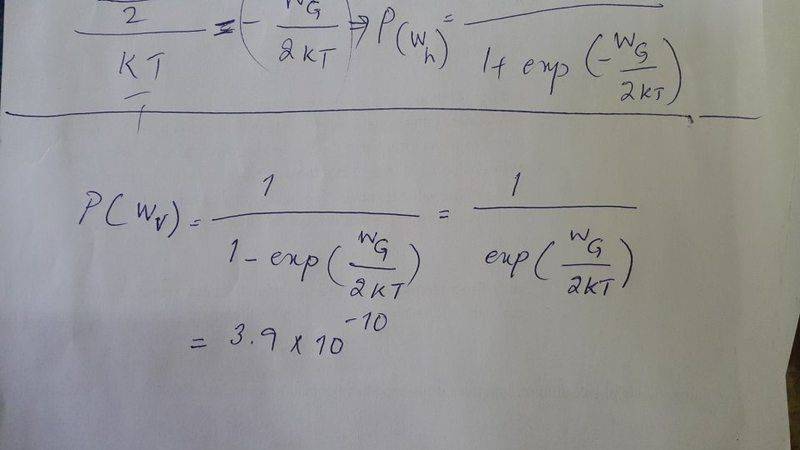 2 / KT = (- WG / 2KT) ⇒ P(Wh) = / 1 + exp(- WG / 2KT)
P(Wv) = 1 / 1 - exp(WG / 2KT) = 1 / exp(WG / 2KT)
= 3.9 x 10^-10